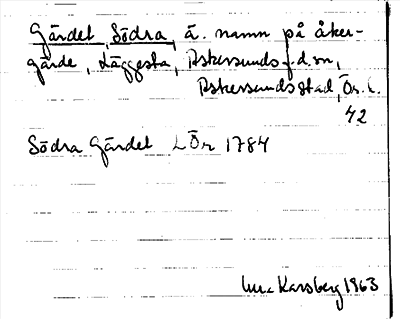 Gärdet, Södra, ä. namn på åker-
gärde, Läggesta, Askersunds d:sn,
Askersunds stad, Ör. l.
42
Södra Gärdet LÖr 1784
Karsberg 1963